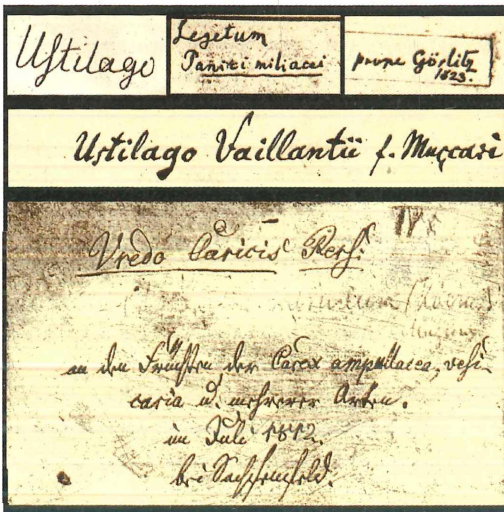 Ustilago
Segetum
Panici miliacei
prope Görlitz
1823.
Ustilago Vaillantii f. Muscari
IV
Uredo Caricis Pers:
an den Früchten der Carex ampullacea, vesi-
caria u. mehrerer Arten.
im Juli 1812.
bei Sachsenfeld.